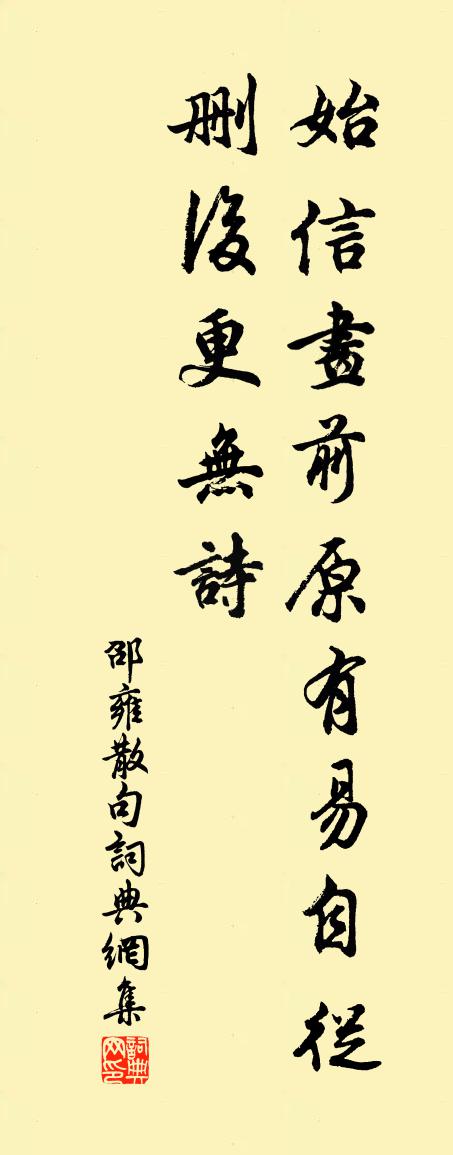 始信畫前原有易自從
刪後更無詩
邵雍散句詞典網集
詞典网印